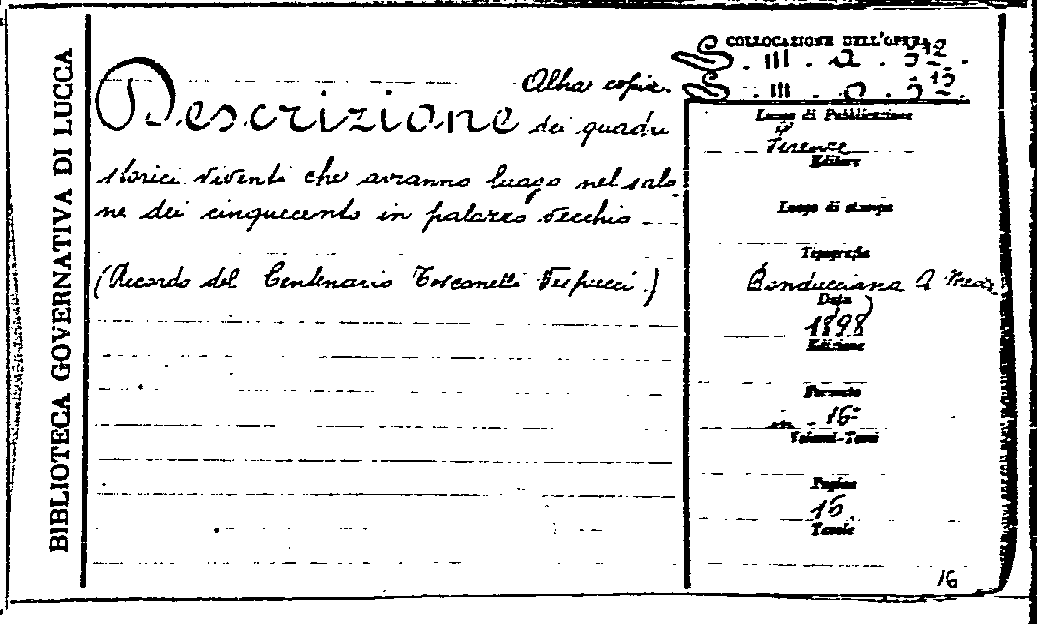 BIBLIOTECA GOVERNATIVA DI LUCCA
COLLOCAZIONE DELL'OPERA
Altra copia.
Descrizione dei quadri
storici viventi che avranno luogo nel salo
ne dei cinquecento in palazzo vecchio
(Ricordo del Centenario Toscanelli Vespucci)
Luogo di Pubblicazione
Firenze
Editore
Luogo di stampa
Tipografia
Bonducciana A
Data
1898
Edizione
Formato
in 16°
Volumi-Tomi
Pagine
15
Tavole
16